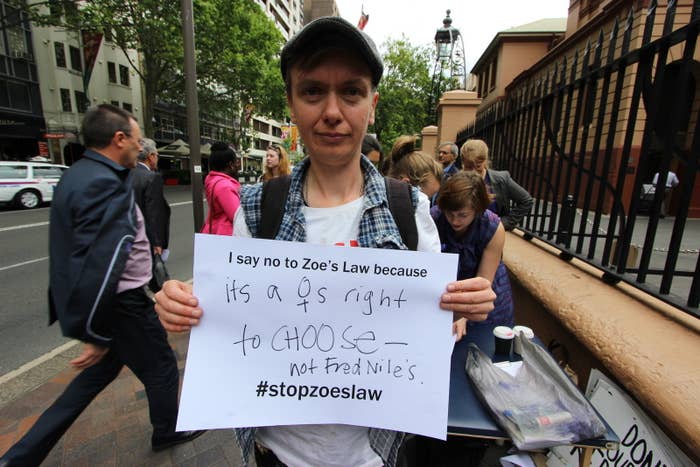 I say no to Zoe's Law because
its a ♀s right
to CHOOSE—
not Fred Nile's.
#stopzoeslaw
DON